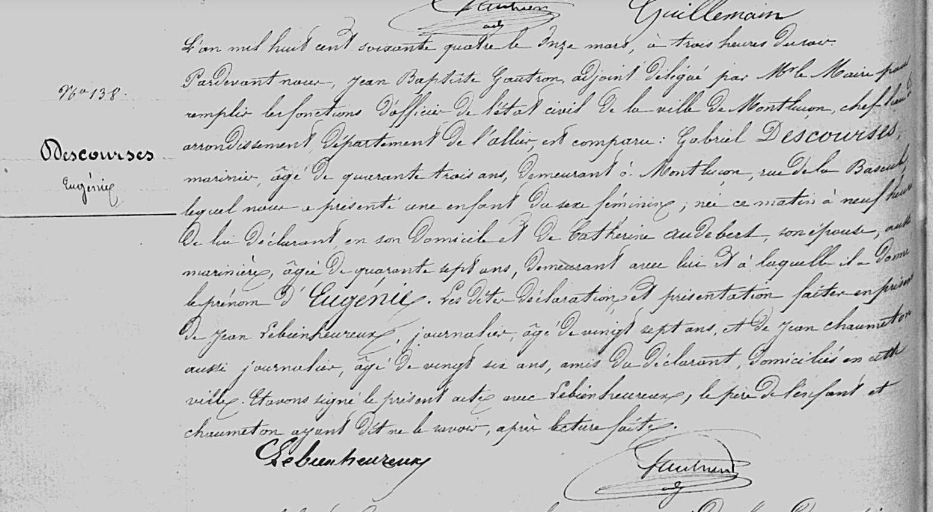 Guillemain
L'an mil huit cent soixante quatre le Onze mars, à trois heures du soir.
Pardevant nous, Jean Baptiste Gautron, adjoint délégué par Mr le Maire pour
remplir les fonctions d'officier de l'état civil de la ville de Montluçon, chef lieu d'
arrondissement département de l'allier, est comparu : Gabriel Descourses,
marinier, âgé de quarante trois ans, demeurant à Montluçon, rue de la
lequel nous a présenté une enfant du sexe féminin, née ce matin à neuf heures
de lui déclarant, en son domicile et de Cathérine Audebert, son épouse, aussi
marinière, âgée de quarante sept ans, demeurant avec lui et à laquelle il a donné
le prénom d'Eugénie. Les dites déclaration et présentation faites en présence
de Jean Lebienheureux, journalier, âgé de vingt sept ans, et de Jean chaumeton
aussi journalier, âgé de vingt six ans, amis du déclarant, domiciliés en cette
ville. Et avons signé le présent acte avec Lebienheureux, le père de l'enfant et
chaumeton ayant dit ne le savoir, après lecture faite.
Lebienheureux
No 138.
Descourses
Eugénie